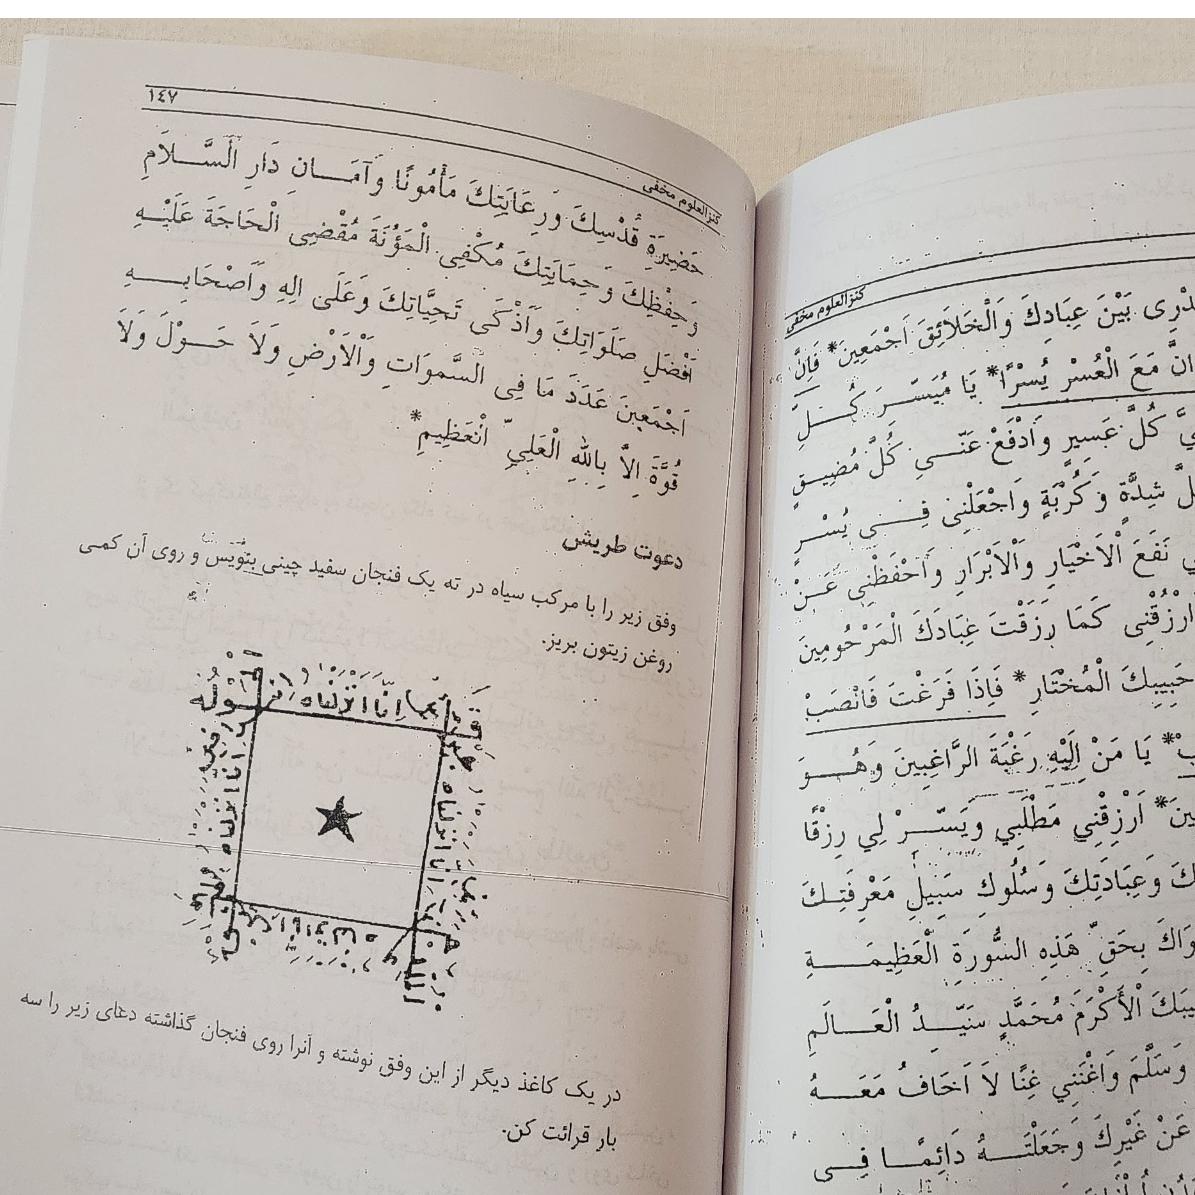 ١٤٧
كنزالعلوم مخفى
حَضِيرَةِ قُدْسِكَ وَرِعَايَتِكَ مَأْمُونًا وَآمَـــانِ دَارِ الْسَّـــلاَمِ
وَحِفْظِكَ وَحِمَايَتِكَ مُكْفِي الْمَؤُنَةَ مُقْضِىِ الْحَاجَةَ عَلَيْـــهِ
اَفْضَلِ صَلَوَاتِكَ وَاَذْكَى تَحِيَّاتِكَ وَعَلَى الِهِ وَاَصْحَابِـــهِ
اَجْمَعِينَ عَدَدَ مَا فِى السَّموَاتِ وَالْاَرْضِ وَلاَ حَـــوْلَ وَلاَ
قُوَّةَ اِلاَّ بِاللهِ الْعَلِيِّ الْعَظِيمِ*
دعوت طریش
وفق زیر را با مرکب سیاه در ته یک فنجان سفید چینی بنویس و روی آن کمی
روغن زیتون بریز.
انا انزلناه
انا انزلناه
انا انزلناه
در یک کاغذ دیگر از این وفق نوشته و آنرا روی فنجان گذاشته دعای زیر را سه
بار قرائت کن.
كنزالعلوم مخفى
بَيْنَ عِبَادِكَ وَالْخَلَائِقَ اَجْمَعِينَ* فَاِنَّ
مَعَ الْعُسْرِ يُسْرًا* يَا مُيَسِّـــرَ كُـــلِّ
كُلَّ عَسِيرٍ وَادْفَعْ عَنِّـــى كُلَّ مُضِيقٍ
شِدَّةٍ وَكُرْبَةٍ وَاجْعَلْنِى فِـــي يُسْـــرٍ
نَفَعَ الْاَخْيَارِ وَالْاَبْرَارِ وَاَحْفَظْنِى عَـــنْ
ارْزُقْنِى كَمَا رَزَقْتَ عِبَادَكَ الْمَرْحُومِينَ
حَبِيبِكَ الْمُخْتَارِ* فَاِذَا فَرَغْتَ فَانْصَبْ
يَا مَنْ اِلَيْهِ رَغْبَةَ الرَّاغِبِينَ وَهُـــوَ
اَرْزِقْنِي مَطْلَبِي وَيَسِّـــرْ لِي رِزْقًا
وَعِبَادَتِكَ وَسُلُوكِ سَبِيلِ مَعْرِفَتِـــكَ
بِحَقِّ هَذِهِ السُّورَةِ الْعَظِيمَـــةِ
الْأَكْرَمَ مُحَمَّدٍ سَيِّـــدُ الْعَـــالَمِ
وَسَلَّمَ وَاغْنَنِي غِنًا لاَ اَخَافُ مَعَـــهُ
عَنْ غَيْرِكَ وَجَعَلْتَـــهُ دَائِمًـــا فِـــى